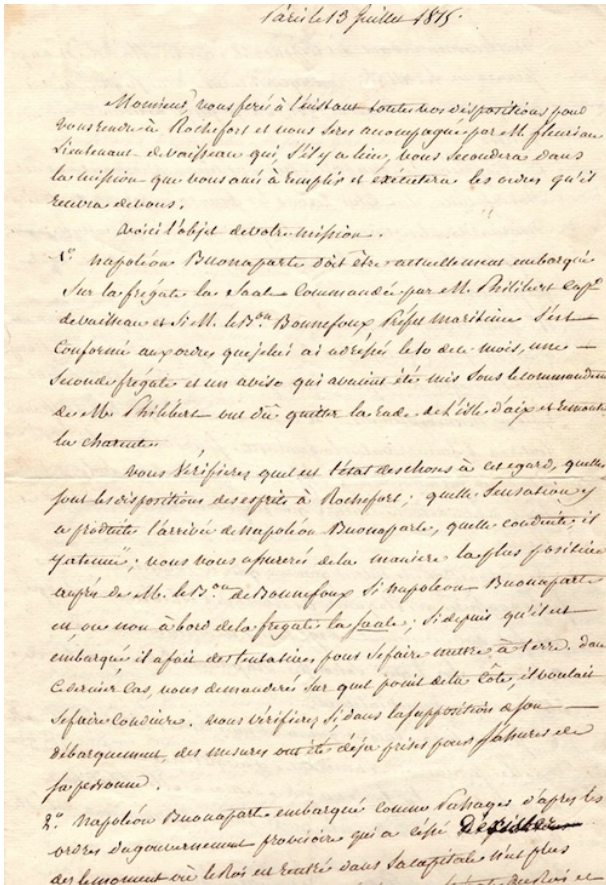 Paris le 13 Juillet 1815.
Monsieur, vous ferés à l'instant toutes vos dispositions pour
vous rendre à Rochefort et vous serés accompagné par M. fleuriau
Lieutenant de vaisseau qui, s'il y a lieu, vous secondera dans
la mission que vous avés à remplir et exécutera les ordres qu'il
recevra de vous.
Voici l'objet de votre mission.
1.° napoléon Buonaparte doit être actuellement embarqué
sur la frégate la Saale commandée par M. Philibert Cap.ne
de vaisseau et si M. le B.on Bonnefoux Préfet maritime s'est
conformé aux ordres que je lui ai adressés le 10 de ce mois, une
seconde frégate et un aviso qui avaient été mis sous le commandem
de M. Philibert ont dû quitter la rade de l'isle d'aix et remonter
la charente.
vous vérifierez quel est l'état des choses à cet égard, quelles
sont les dispositions des esprits à Rochefort; quelle sensation y
a produite l'arrivée de napoléon Buonaparte, quelle conduite il
y a tenue; vous vous assurerés de la manière la plus positive
auprès de M. le B.on de Bonnefoux si napoléon Buonaparte
est ou non à bord de la frégate la Saale; si depuis qu'il est
embarqué il a fait des tentatives pour se faire mettre à terre. dans
ce dernier cas, vous demanderés sur quel point de la côte, il voulait
se faire conduire. vous vérifierez si, dans la supposition de son
débarquement, des mesures ont été déjà prises pour s'assurer de
sa personne.
2.° napoléon Buonaparte embarqué comme Passager d'après les
ordres du gouvernement provisoire qui a cessé d'exister
dès le moment où le Roi est rentré dans sa capitale n'est plus
du Roi et